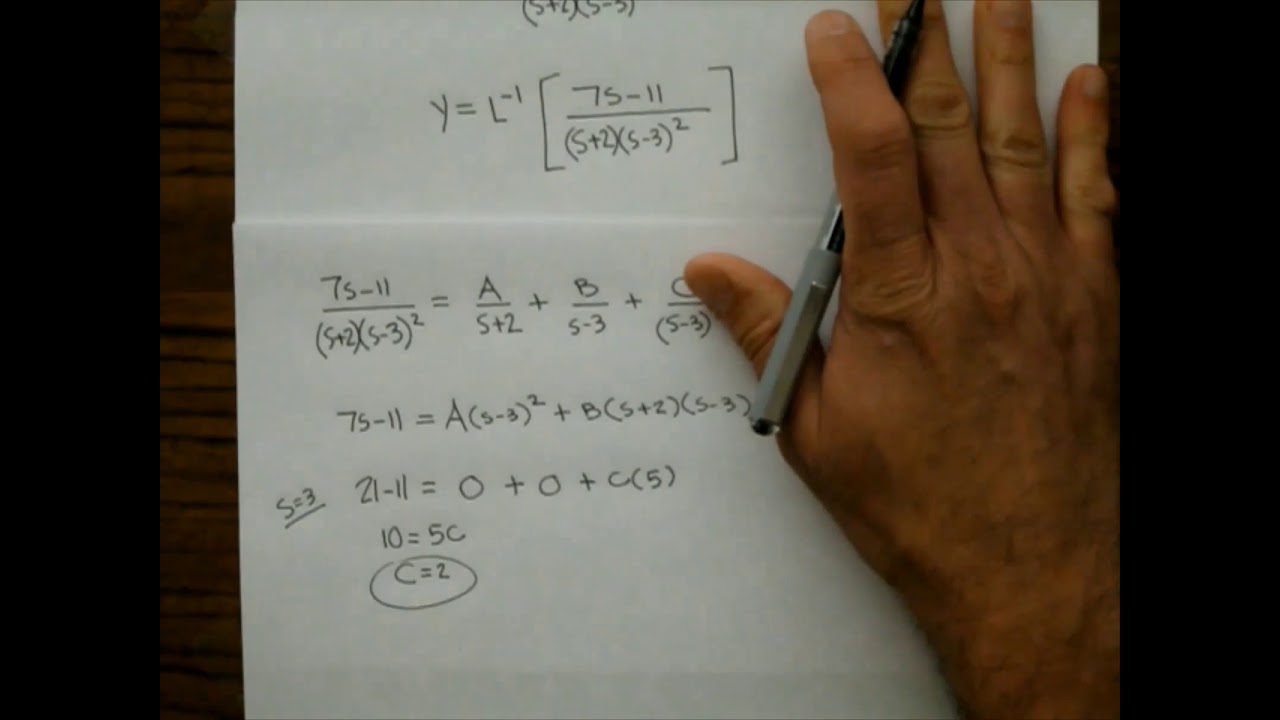 (s+2)(s-3)
y = L⁻¹ [ 7s-11 / (s+2)(s-3)² ]
7s-11 / (s+2)(s-3)² = A / s+2 + B / s-3 + C / (s-3)
7s-11 = A(s-3)² + B(s+2)(s-3)
s=3 21-11 = 0 + 0 + C(5)
10 = 5C
C=2